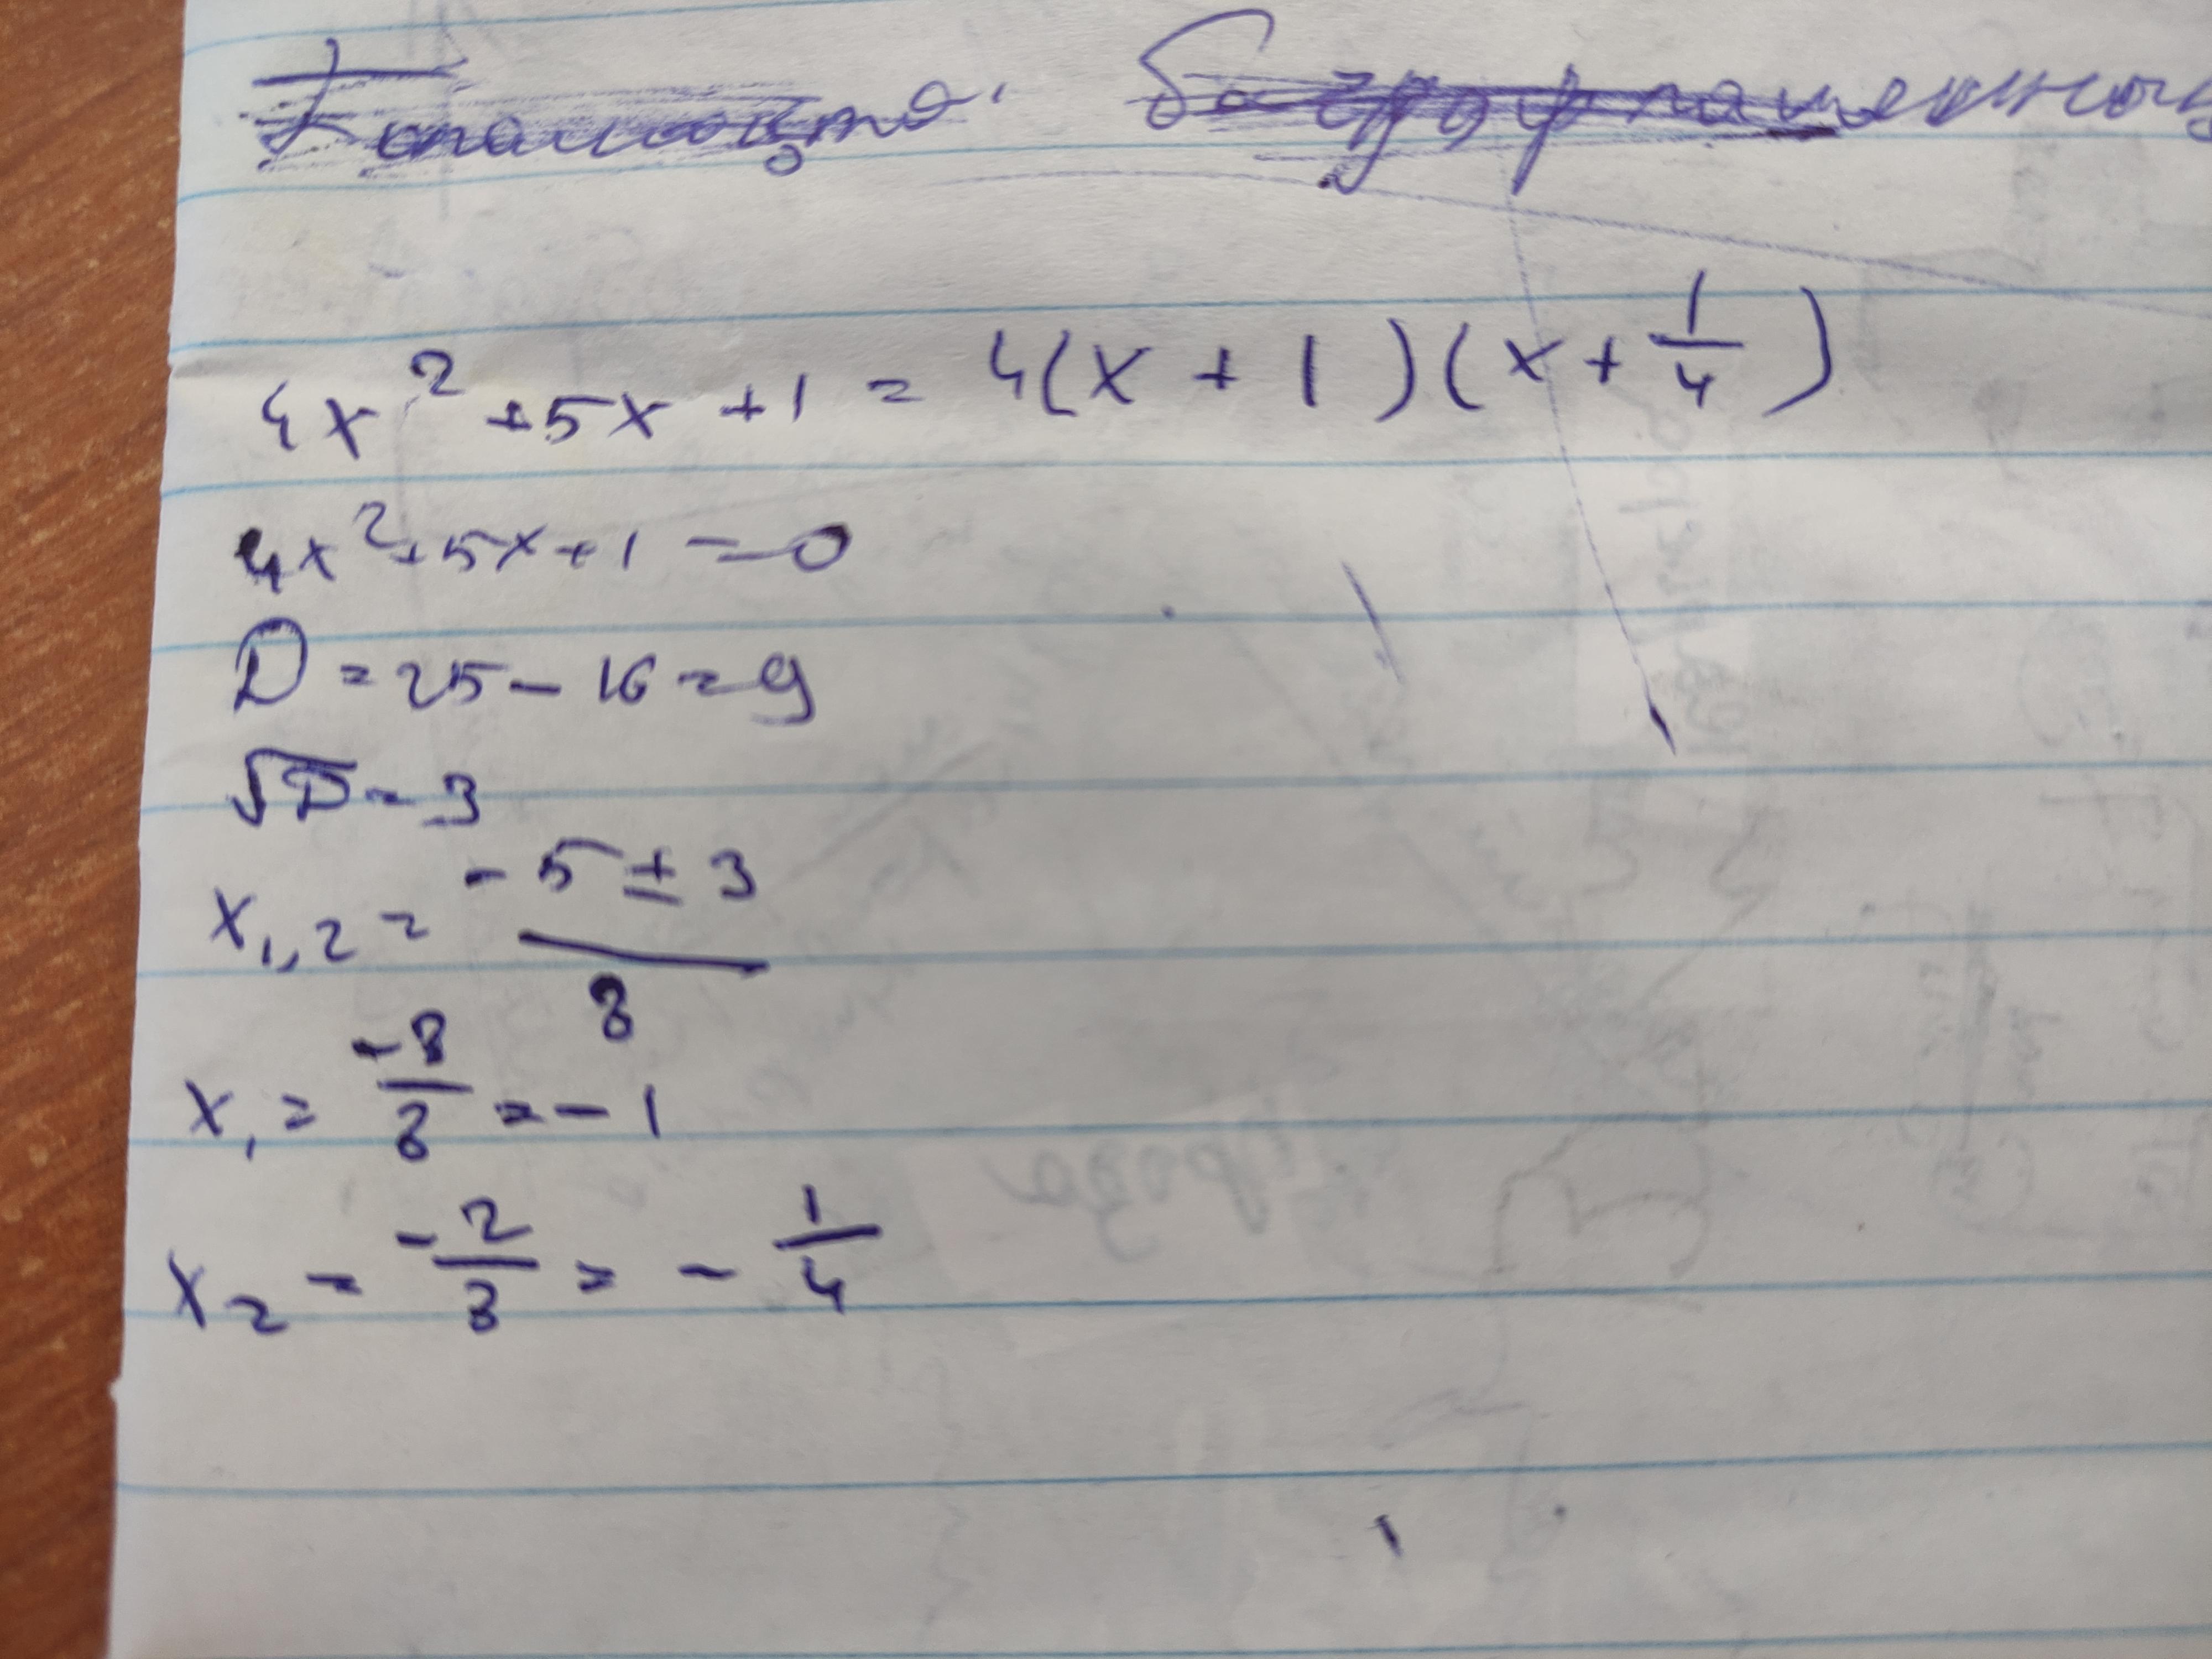 4x² + 5x + 1 = 4(x + 1)(x + 1/4)
4x² + 5x + 1 = 0
D = 25 - 16 = 9
√D = 3
x₁,₂ = (-5 ± 3)/8
x₁ = -8/8 = -1
x₂ = -2/8 = -1/4